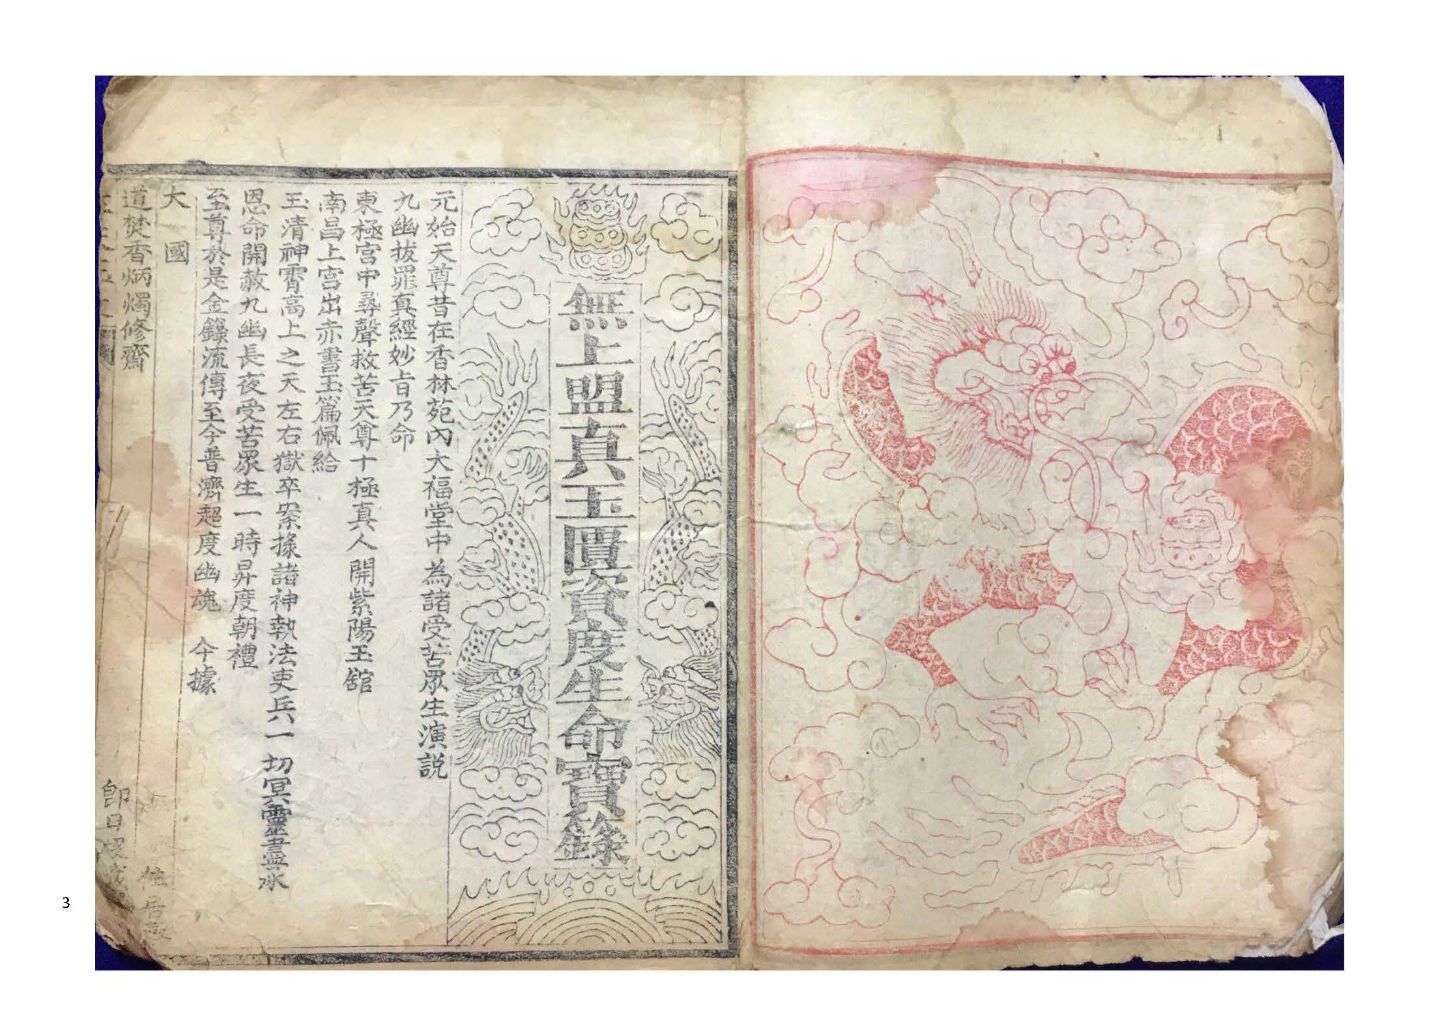 無上盟真玉匱資度生命寶籙
元始天尊昔在香林苑內大福堂中為諸受苦眾生演説
九幽拔罪真經妙旨乃命
東極宮中尋聲救苦天尊十極真人開紫陽玉舘
南昌上宮出赤書玉篇佩給
玉清神霄高上之天左右獄卒案掾諸神執法吏兵一切冥靈盡承
恩命開赦九幽長夜受苦眾生一時昇度朝禮
至尊於是金籙流傳至今普濟超度幽魂　今據
大　國
道焚香炳燭修齋
卽日
3